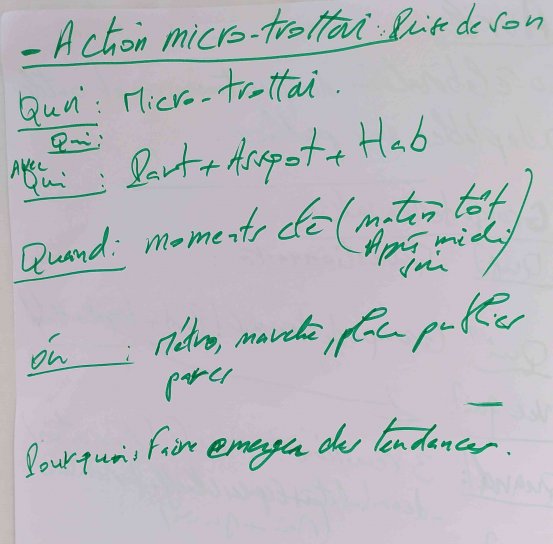 - Action micro-trottoi : Prise de son
Quoi : Micro-trottoi.
Qui :
Avec Qui : Part + Asspot + Hab
Quand : moments clé (matin tôt
Après midi
soir)
où : Métro, marché, place publics
parcs
Pourquoi : Faire emerger des tendances.